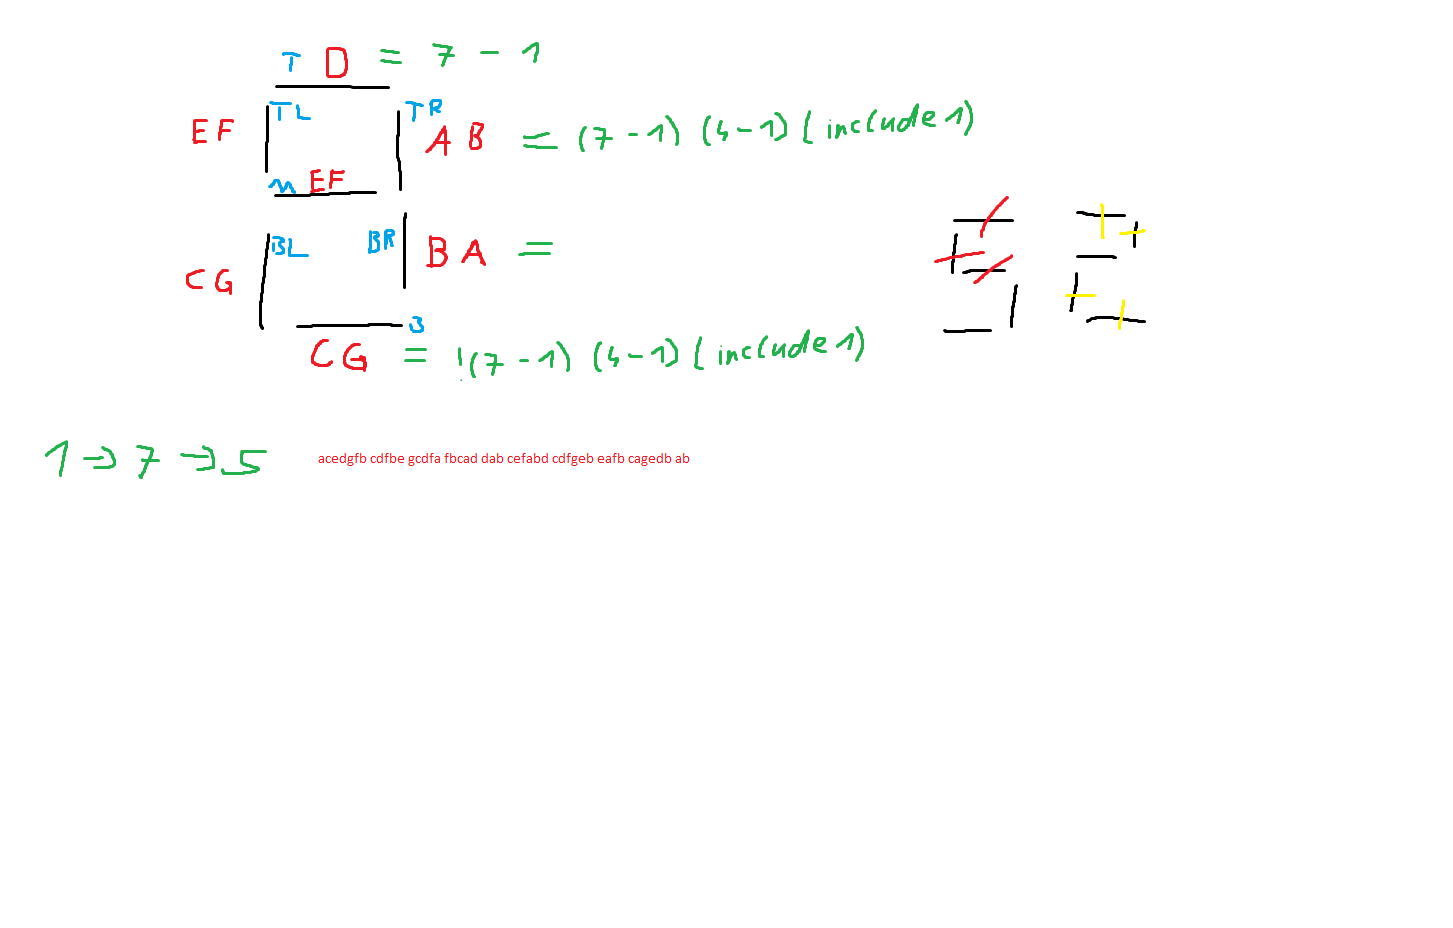 T D = 7 - 1
EF TL TR A B = (7-1) (4-1) ( include 1)
m EF
CG BL BR B A =
B
CG = !(7-1) (4-1) ( include 1)
1 → 7 → 5 acedgfb cdfbe gcdfa fbcad dab cefabd cdfgeb eafb cagedb ab